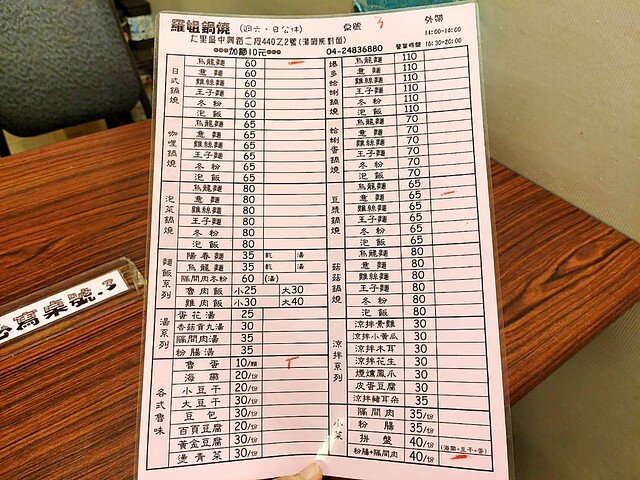 羅姐鍋燒 (週六、日公休) 桌號 3 外帶
仁里區中興路二段440之2號(湯姆熊對面) 11:00-14:00
***加麵10元*** 04-24836880 營業時間 16:30-20:00
日式鍋燒
烏龍麵 60
意麵 60
雞絲麵 60
王子麵 60
冬粉 60
泡飯 60
咖哩鍋燒
烏龍麵 65
意麵 65
雞絲麵 65
王子麵 65
冬粉 65
泡飯 65
泡菜鍋燒
烏龍麵 80
意麵 80
雞絲麵 80
王子麵 80
冬粉 80
泡飯 80
麵飯系列
陽春麵 35 乾 湯
烏龍麵 35 乾 湯
隔間肉冬粉 60 (湯)
魯肉飯 小25 大30
雞肉飯 小30 大40
湯系列
蛋花湯 25
香菇貢丸湯 30
隔間肉湯 35
粉腸湯 35
各式魯味
魯蛋 10/顆 T
海帶 20/份
小豆干 20/份
大豆干 30/份
豆包 30/份
百頁豆腐 20/份
黃金豆腐 30/份
燙青菜 30/份
爆多蛤蜊鍋燒
烏龍麵 110
意麵 110
雞絲麵 110
王子麵 110
冬粉 110
泡飯 110
蛤蜊蛋鍋燒
烏龍麵 70
意麵 70
雞絲麵 70
王子麵 70
冬粉 70
泡飯 70
豆漿鍋燒
烏龍麵 65
意麵 65
雞絲麵 65
王子麵 65
冬粉 65
泡飯 65
菇菇鍋燒
烏龍麵 80
意麵 80
雞絲麵 80
王子麵 80
冬粉 80
泡飯 80
涼拌系列
涼拌素雞 30
涼拌小黃瓜 30
涼拌木耳 30
涼拌花生 30
煙燻鳳爪 30
皮蛋豆腐 30
涼拌豬耳朵 35
小菜
隔間肉 35/份
粉腸 35/份
拼盤 40/份 (海帶+豆干+蛋)
粉腸+隔間肉 40/份
寫桌號.3